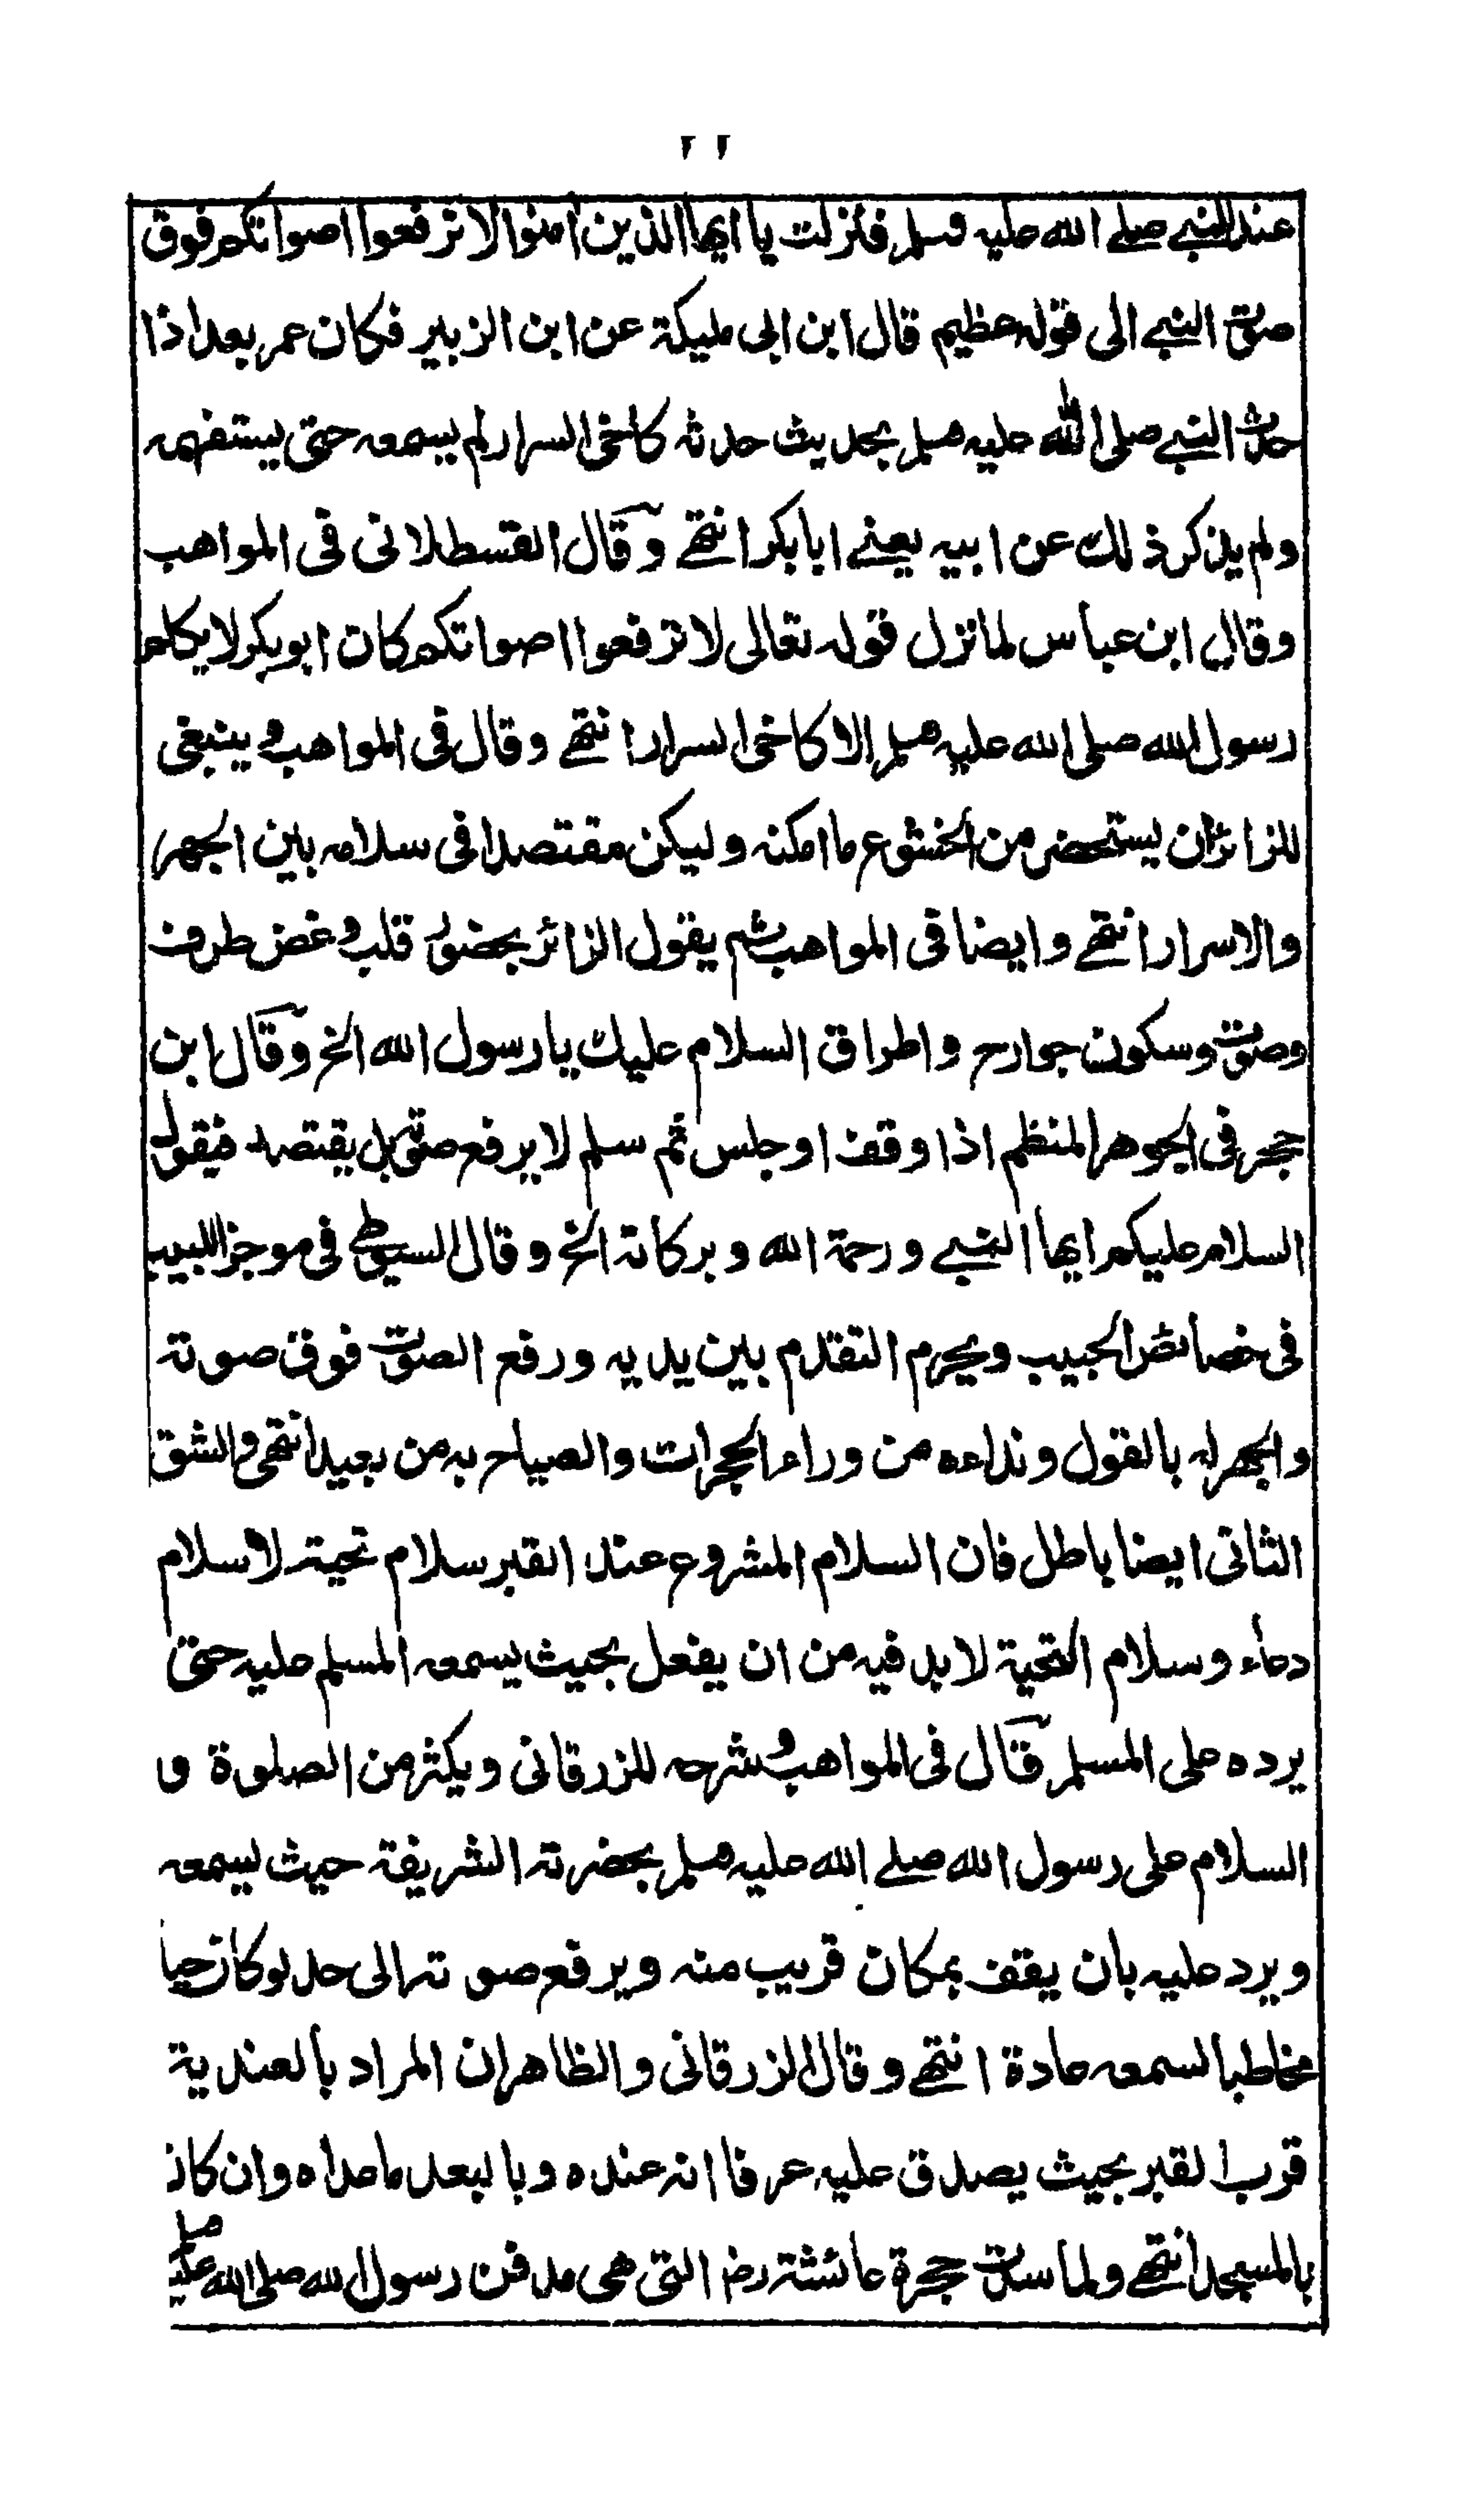 ٢٢
عند النبي صلى الله عليه وسلم فنزلت يا ايها الذين امنوا لا ترفعوا اصواتكم فوق
صوت النبي الى قوله عظيم قال ابن ابى مليكة عن ابن الزبير فكان عمر بعد اذا
حدث النبي صلى الله عليه وسلم بحديث حدثه كاخى السرار لم يسمعه حتى يستفهمه
ولم يذكر ذلك عن ابيه يعنى ابا بكر انتهى وقال القسطلانى فى المواهب
وقال ابن عباس لما نزل قوله تعالى لا ترفعوا اصواتكم كان ابو بكر لا يكلم
رسول الله صلى الله عليه وسلم الا كاخى السرار انتهى وقال فى المواهب وينبغى
للزائر ان يستحضر من الخشوع ما امكنه وليكن مقتصدا فى سلامه بين الجهر
والاسرار انتهى وايضا فى المواهب ثم يقول الزائر بحضور قلب وغض طرف
وصوت وسكون جوارح واطراق السلام عليك يا رسول الله الخ وقال ابن
حجر فى الجوهر المنظم اذا وقف او جلس ثم سلم لا يرفع صوته بل يقتصد فيقول
السلام عليكم ايها النبي ورحمة الله وبركاته الخ وقال السيوطى فى موجز اللبيب
فى خصائص الحبيب ويحرم التقدم بين يديه ورفع الصوت فوق صوته
والجهر له بالقول ونداءه من وراء الحجرات والصياح به من بعيد انتهى والشق
الثانى ايضا باطل فان السلام المشروع عند القبر سلام تحية لا سلام
دعاء وسلام التحية لا بد فيه من ان يفعل بحيث يسمعه المسلم عليه حتى
يرده على المسلم قال فى المواهب وشرحه للزرقانى ويكثر من الصلوة و
السلام على رسول الله صلى الله عليه وسلم بحضرته الشريفة حيث يسمعه
ويرد عليه بان يقف بمكان قريب منه ويرفع صوته الى حد لو كان حيا
مخاطبا لسمعه عادة انتهى وقال الزرقانى والظاهر ان المراد بالعندية
قرب القبر بحيث يصدق عليه عرفا انه عنده وبالبعد ما عداه وان كان
بالمسجد انتهى ولما سدت حجرة عائشة رضـ التى هى مدفن رسول الله صلى الله عليه وسلم